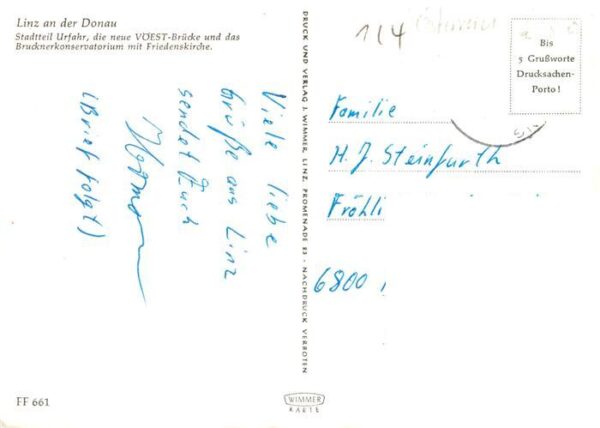 Linz an der Donau
Stadtteil Urfahr, die neue VÖEST-Brücke und das
Brucknerkonservatorium mit Friedenskirche.
Viele liebe
Grüße aus Linz
sendet Euch
(Brief folgt)
FF 661
DRUCK UND VERLAG J. WIMMER, LINZ, PROMENADE 23 · NACHDRUCK VERBOTEN
114
Bis
5 Grußworte
Drucksachen-
Porto!
Familie
H. J. Steinfurth
Fröhli
6800
WIMMER
KARTE